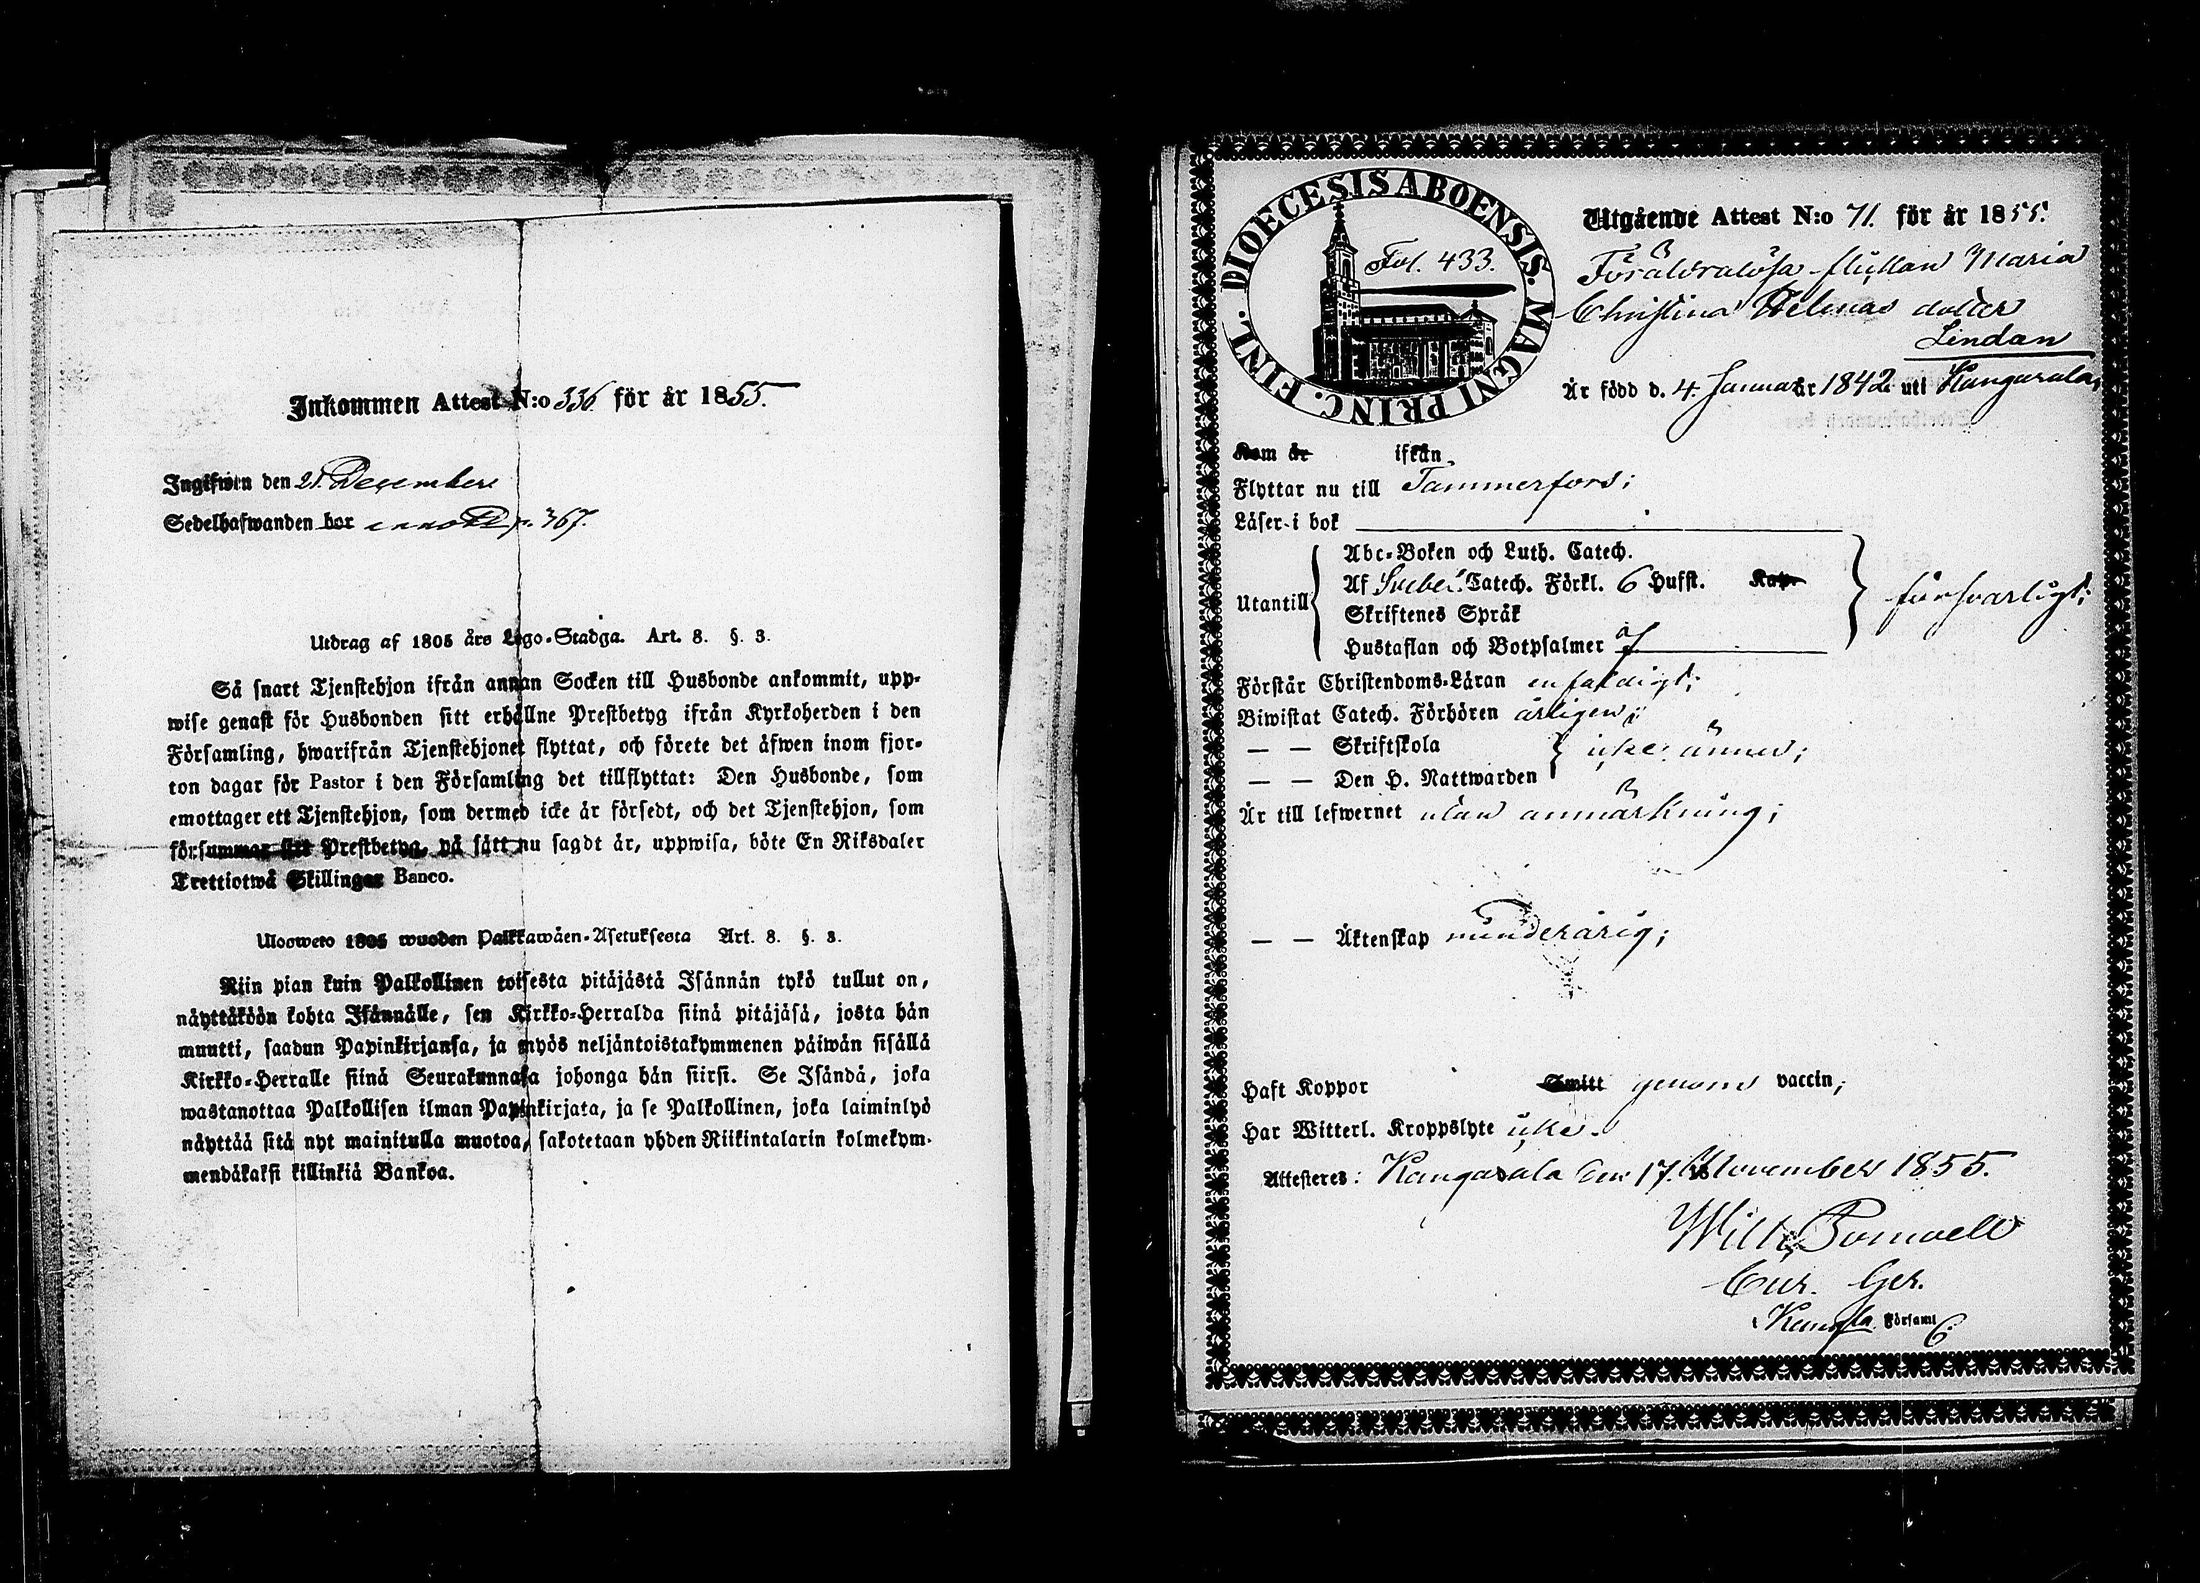 Inkommen Attest N:o 336. för år 1855.
Ingifwen den 21 December
Sedelhafwanden bor p. 367.
Utdrag af 1805 års Lego-Stadga. Art. 8. §. 3.
Så snart Tjenstehjon ifrån annan Socken till Husbonde ankommit, upp-
wise genast för Husbonden sitt erhållne Prestbetyg ifrån Kyrkoherden i den
Församling, hwarifrån Tjenstehjonet flyttat, och förete det äfwen inom fjor-
ton dagar för Pastor i den Församling det tillflyttat: Den Husbonde, som
emottager ett Tjenstehjon, som dermed icke är försedt, och det Tjenstehjon, som
försummar sitt Prestbetyg, på sätt nu sagdt är, uppwisa, böte En Riksdaler
Trettiotwå Skillingar Banco.
Ulosweto 1805 wuoden Palkkawäen-Asetuksesta Art. 8. §. 3.
Niin pian kuin Palkollinen toisesta pitäjästä Isännän tykö tullut on,
näyttäköön kohta Isännälle, sen Kirkko-Herralda siinä pitäjäsä, josta hän
muutti, saadun Papinkirjansa, ja myös neljäntoistakymmenen päiwän sisällä
Kirkko-Herralle siinä Seurakunnasa johonga hän siirsi. Se Isändä, joka
wastanottaa Palkollisen ilman Papinkirjata, ja se Palkollinen, joka laiminlyö
näyttää sitä nyt mainitulla muotoa, sakotetaan yhden Riikintalarin kolmekym-
mendäkaksi killinkiä Bankoa.
DIOECESIS ABOENSIS. MAGNI PRINC. FINL.
Fol. 433.
Utgående Attest N:o 71. för år 1855.
Föräldralösa flickan Maria
Christina Helenas dotter
Lindan
Är född d. 4. Januar är 1842 uti Kangasala,
Kom år ifrån
Flyttar nu till Tammerfors;
Läser i bok
Utantill
Abc-Boken och Luth. Catech.
Af Svebei. Catech. Förkl. 6 Hufst. Kap.
Skriftenes Språk
Hustaflan och Botpsalmer
försvarligt;
Förstår Christendoms-Läran enfaldigt;
Biwistat Catech. Förhören årligen;
— — Skriftskola
— — Den H. Nattwarden
icke ännu;
Är till lefwernet utan anmärkning;
— — Äktenskap minderårig;
Haft Koppor Smitt genom vaccin;
Har Witterl. Kroppslyte icke.
Attesteres: Kangasala den 17. November 1855.
Wilh.
Cur. Ger.
i Kangsla Församl